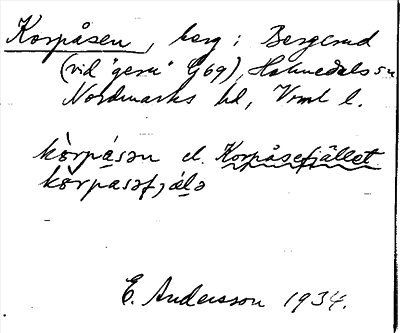 Korpåsen, berg i Bergerud
(vid "geru" G69), Holmedals sn
Nordmarks hd, Vrml l.
kòrpásən el. Korpåsefjället
kòrpasəfjälə
E. Andersson 1934.